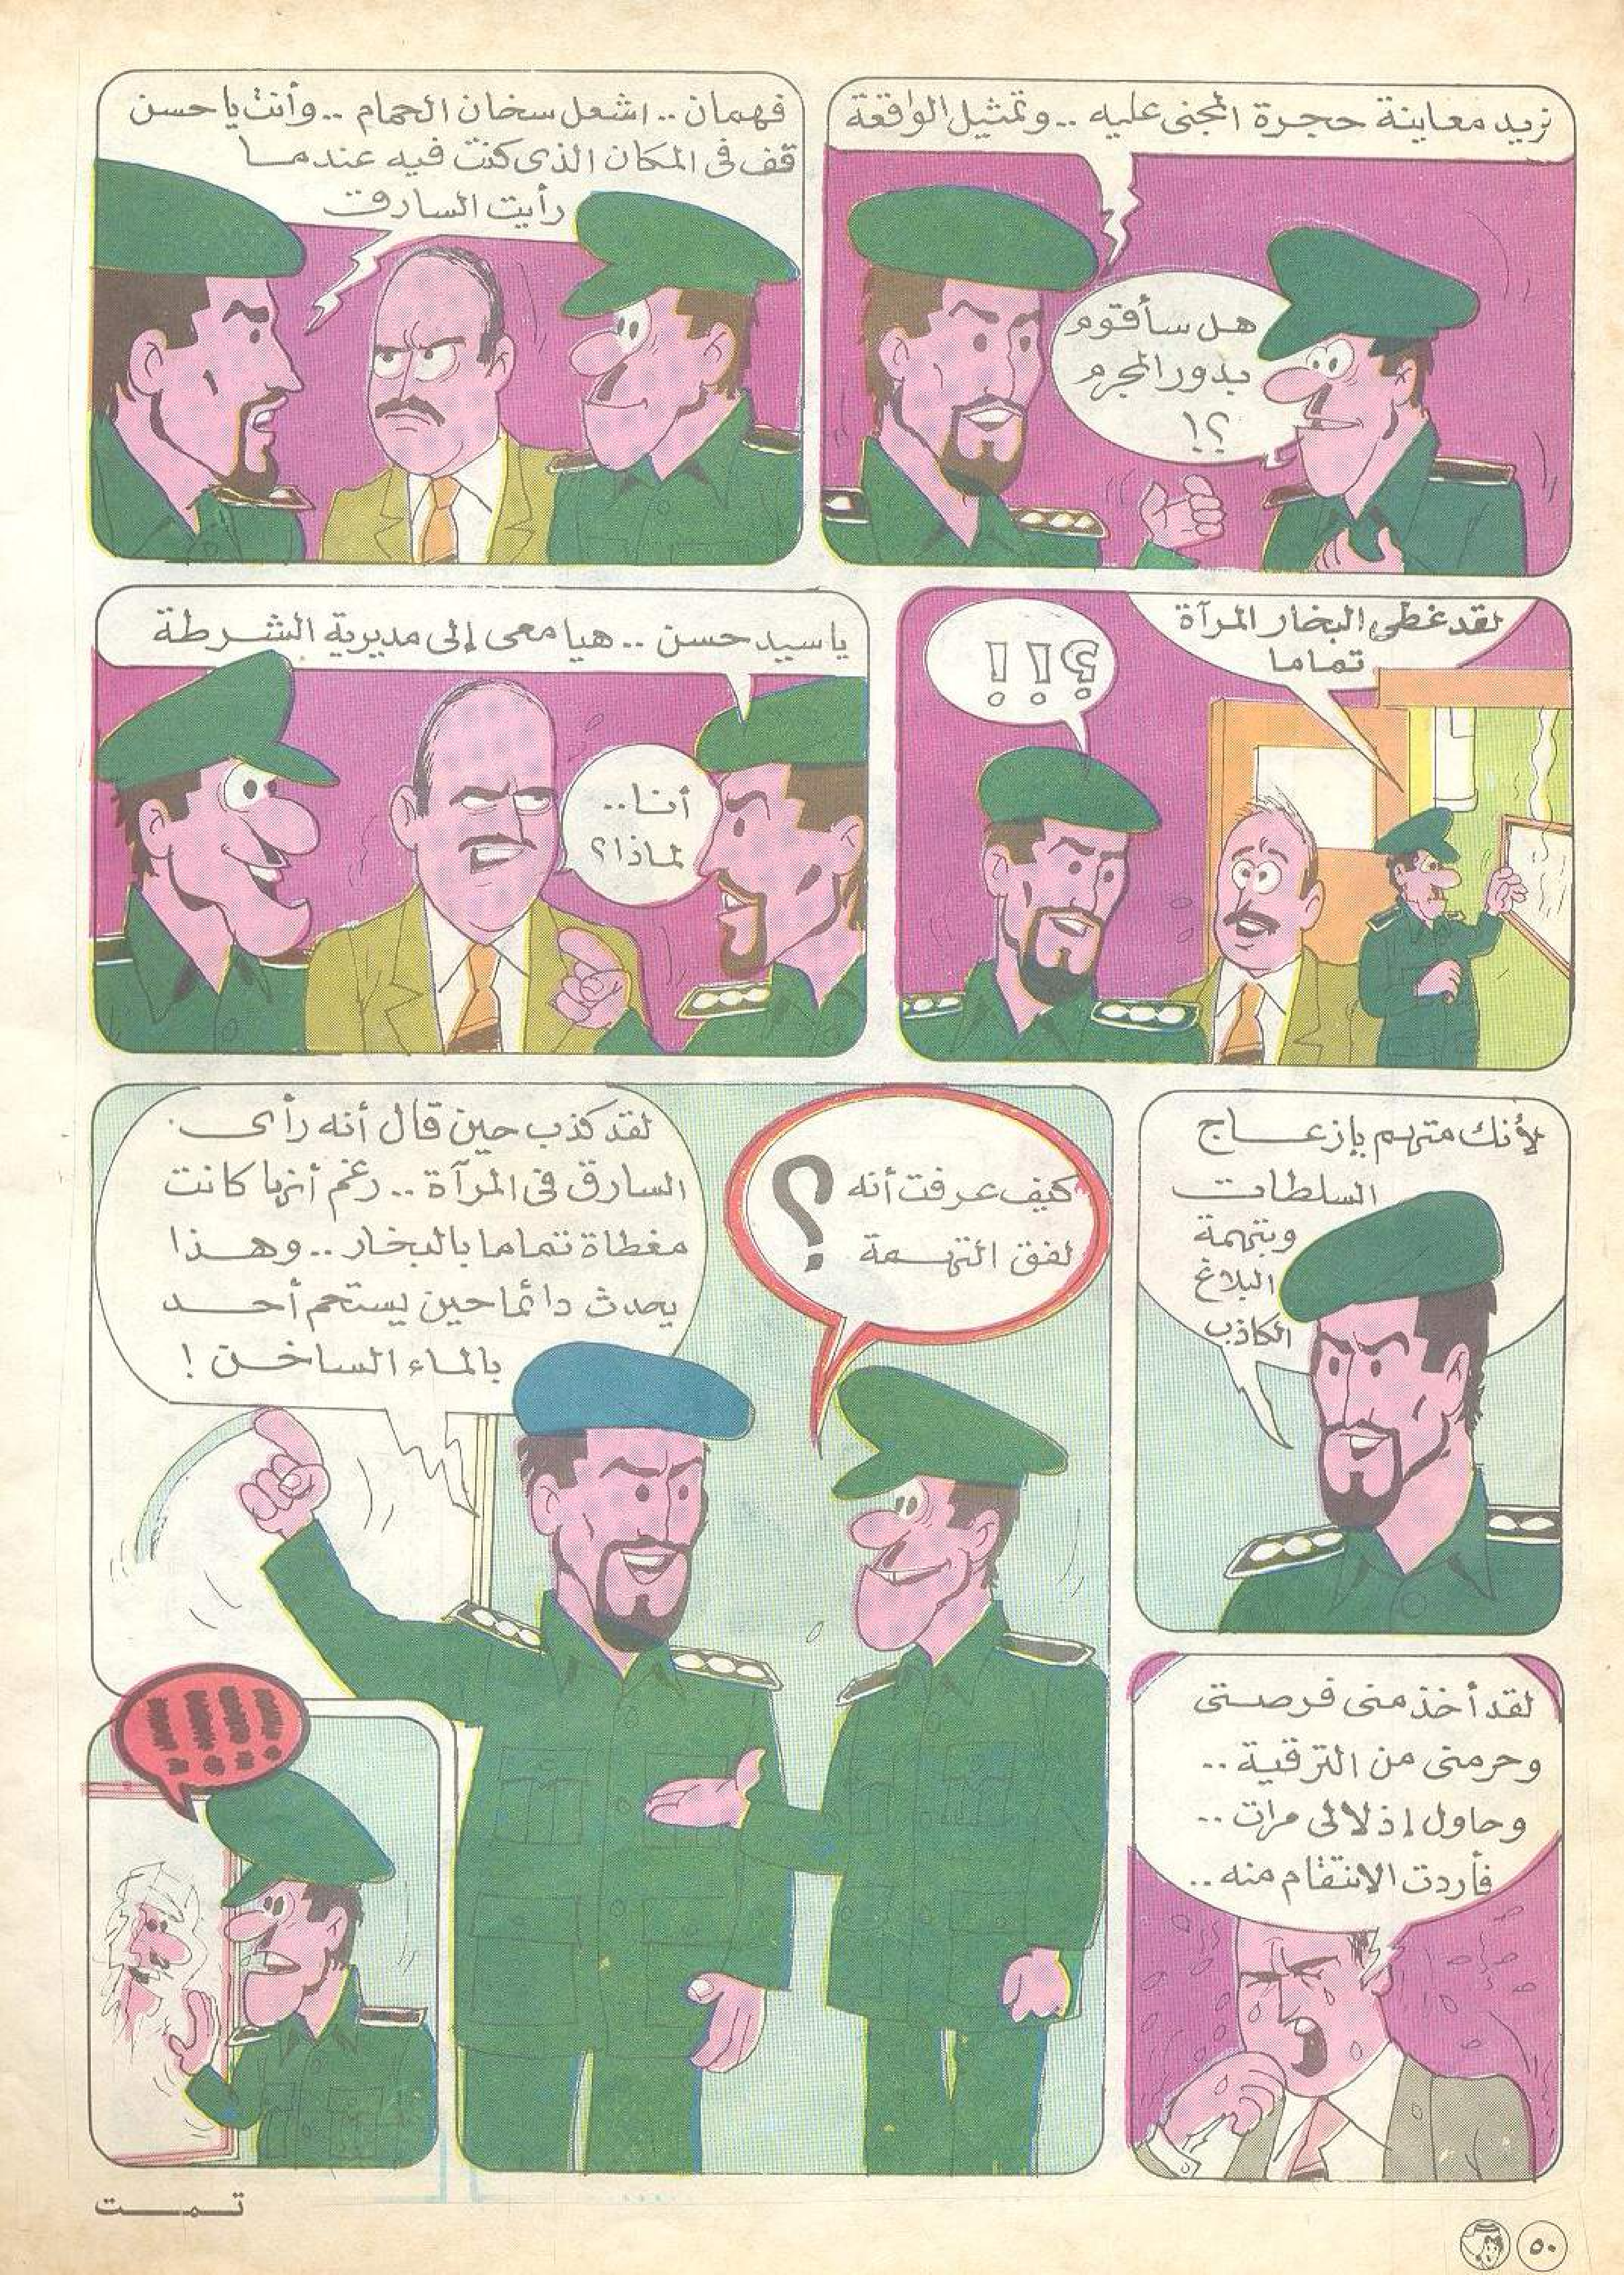 نريد معاينة حجرة المجنى عليه .. وتمثيل الواقعة
هل سأقوم
بدور المجرم
؟!
فهمان .. اشعل سخان الحمام .. وأنت يا حسن
قف فى المكان الذى كنت فيه عندما
رأيت السارق
لقد غطى البخار المرآة
تماما
؟!!
يا سيد حسن .. هيا معى إلى مديرية الشرطة
أنا ..
لماذا؟
لأنك متهم بإزعاج
السلطات
وبتهمة
البلاغ
الكاذب
لقد أخذ منى فرصتى
وحرمنى من الترقية ..
وحاول إذلالى مرات ..
فأردت الانتقام منه ..
كيف عرفت أنه
لفق التهمة ؟
لقد كذب حين قال أنه رأى
السارق فى المرآة .. رغم أنها كانت
مغطاة تماما بالبخار .. وهذا
يحدث دائما حين يستحم أحد
بالماء الساخن !
!!!!
تمت
٥٠